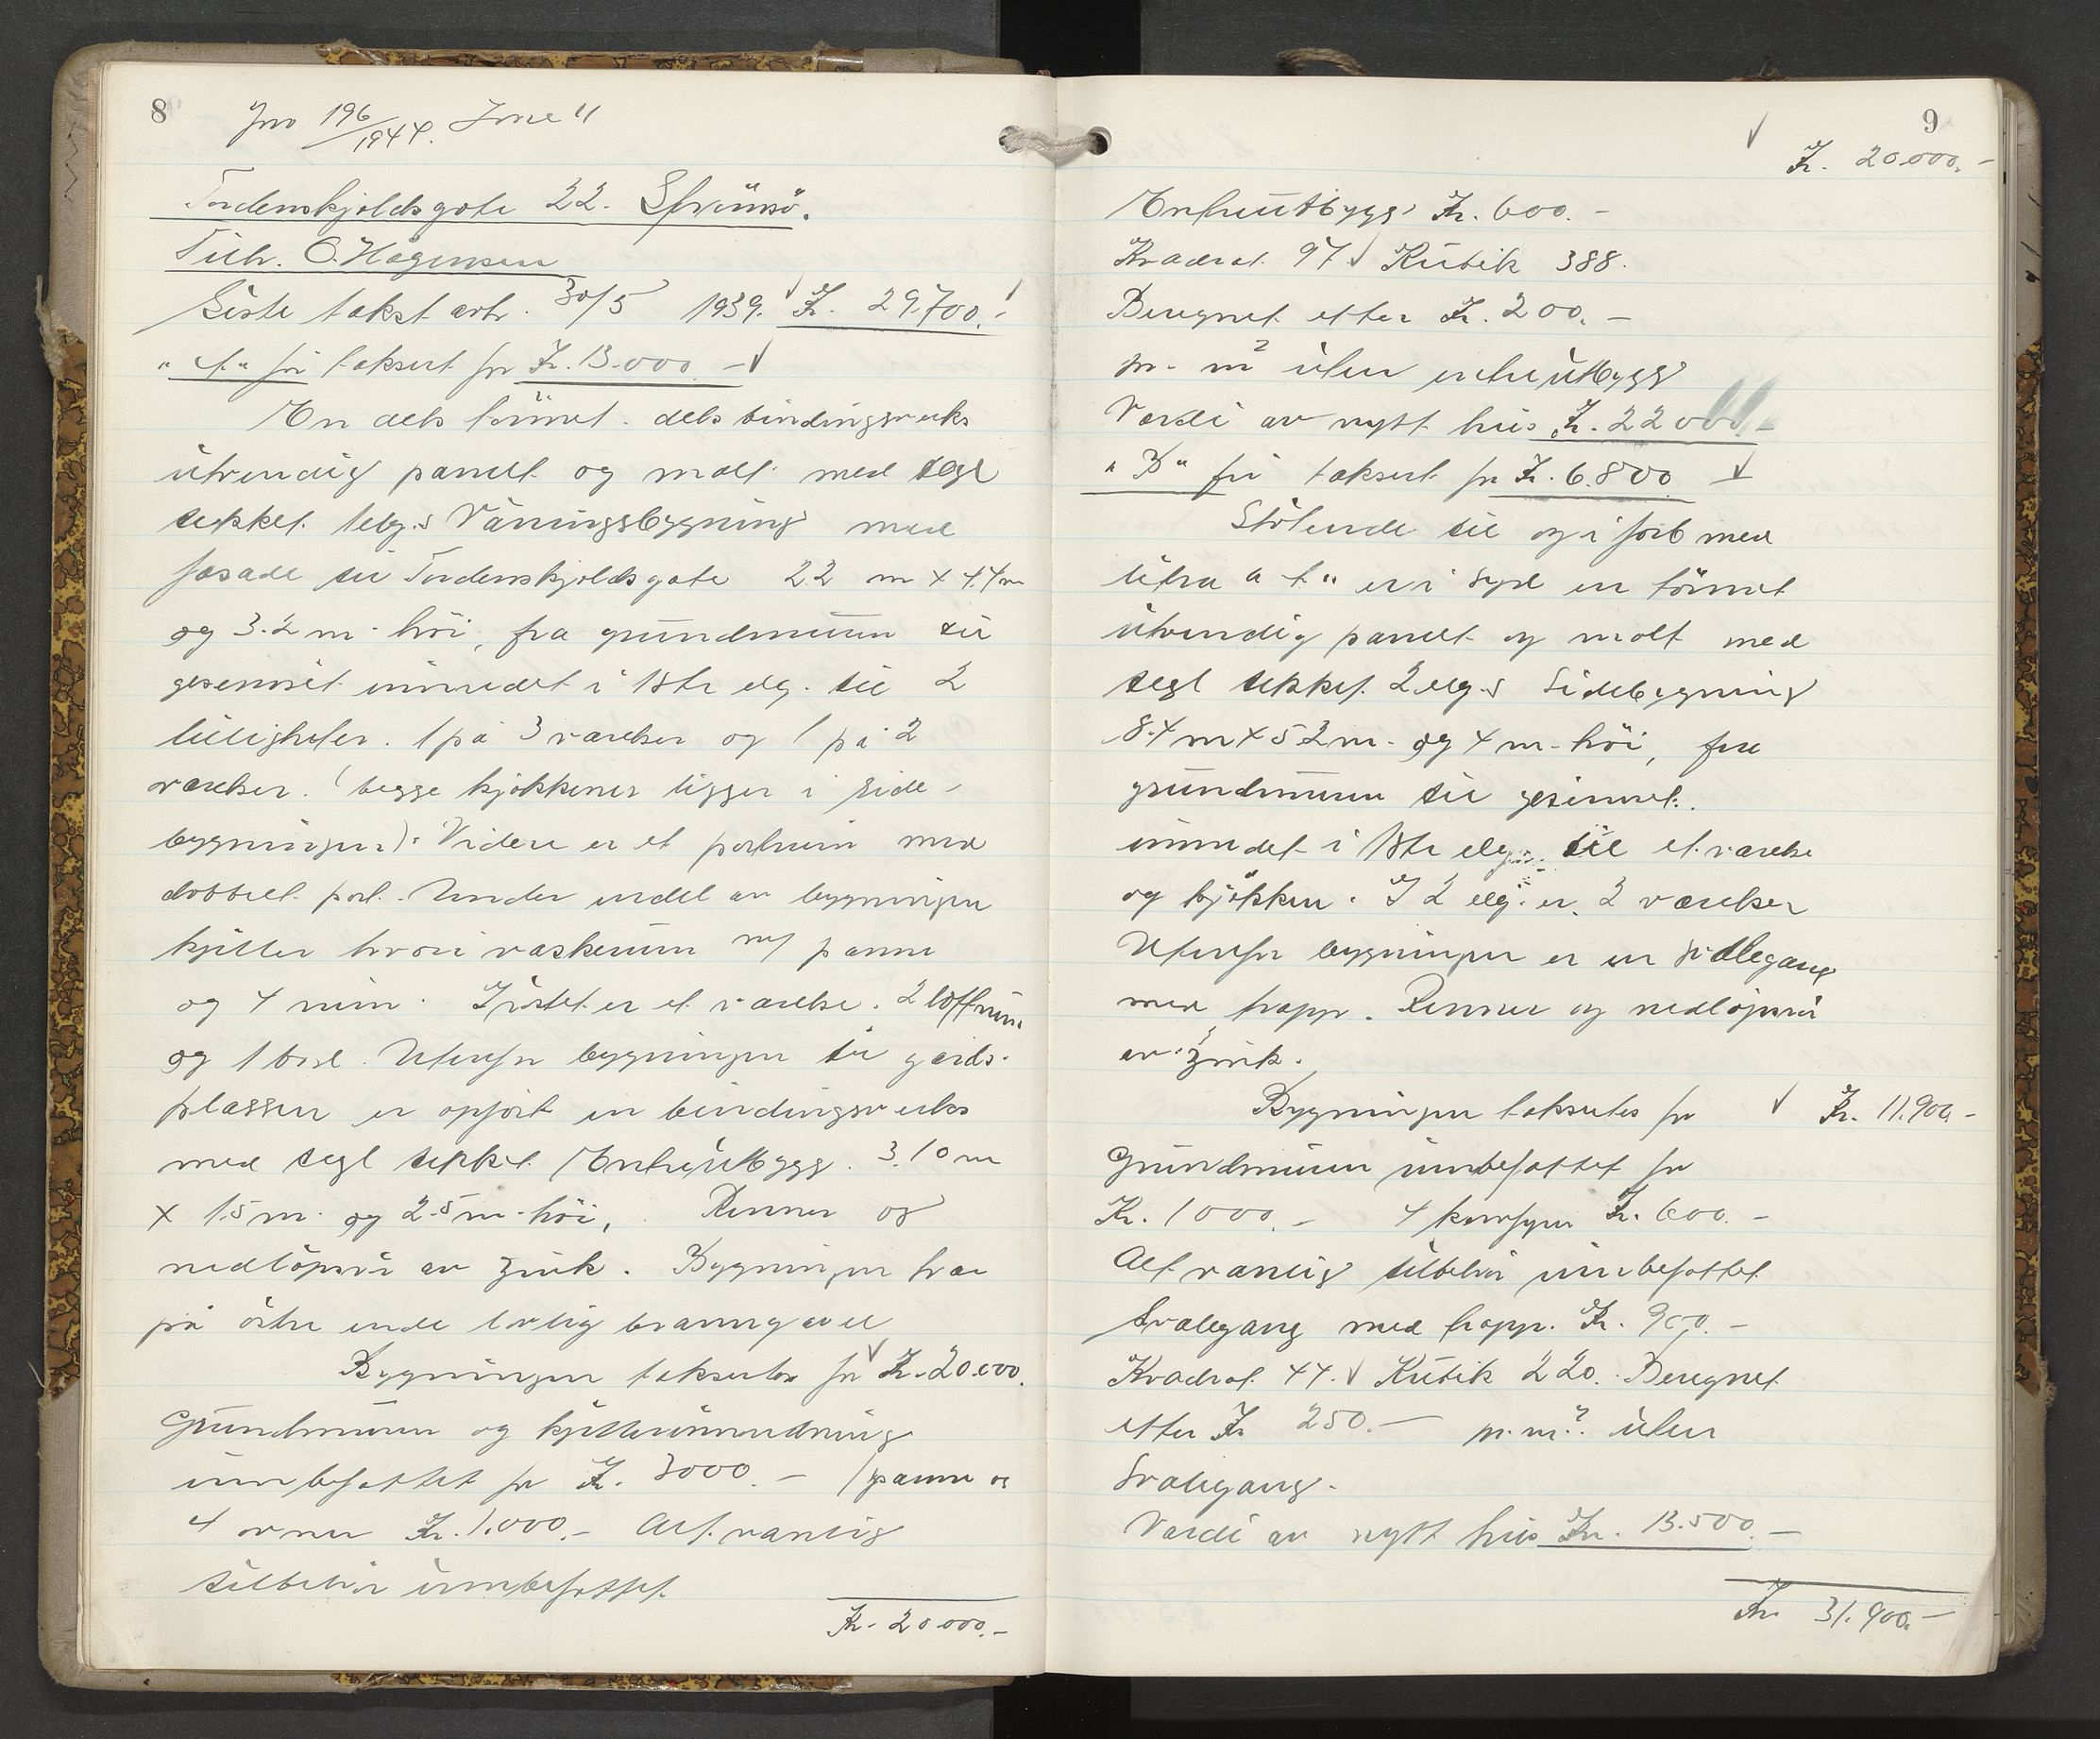 8
Jno 196/1944. Sone II
Tordenskjoldsgate 22. Strömsö.
Tilh. O. Hagensen
Siste takst avh. 30/5 1939. Kr. 29.700.-
"A" før taksert for Kr. 13.000.-
En dels tömret. dels bindingsverks
utvendig panelt og malt med tegl
tekket 1etg.s Våningsbygning med
fasade til Tordenskjoldsgate 22 m x 4.4 m
og 3.2 m. høi, fra grundmuren til
gesemset innredet i 1ste etg. til 2
leiligheter. 1 på 3 værelser og 1 på 2
værelser. (begge kjøkkener ligger i side-
bygningen). Videre er et portrum med
dobbelt port. Under endel av bygningen
kjeller hvori vaskerum m/ panne
og 4 rum. Ivistet er et værelse. 2 loftrum
og 1 bod. Utenfor bygningen til gårds-
plassen er opført en bindingsverks
med tegl tekket Entreutbygg. 3.10 m
x 1.5 m. og 2.5 m. høi, Renner og
nedløpsrör av zink. Bygningen har
på östre ende lovlig branngavel
Bygningen takseres for Kr. 20.000.
Grundmuren og kjellerinnredning
innbefattet for Kr. 3000.- 1 panne og
4 ovner Kr. 1.000.- Alt vanlig
tilbehör innbefattet.
Kr. 20.000.-
9
Kr. 20.000.-
Entreutbygg Kr. 600.-
Kvadrat 97 Kubik 388.
Beregnet etter Kr. 200.-
pr. m² uten entreutbygg
Verdi av nytt hus Kr. 22000.-
"B" før taksert for Kr. 6.800.-
Stötende til og i forb med
litra "A" er i syd en tömret
utvendig panelt og malt med
tegl tekket 2 etg.s Sidebygning
8.4 m x 5.2 m. og 4 m. höi, fra
grundmuren til gesemset.
innredet i 1ste etg. til et værelse
og kjökken. I 2 etg. er 2 værelser
Utenfor bygningen er en svalegang
med trapp. Renner og nedlöpsrör
av zink.
Bygningen takseres for Kr. 11.900.-
Grundmuren innbefattet for
Kr. 1000.- 4 komfyrer Kr. 600.-
Alt vanlig tilbehör innbefattet
Svalegang med trapp. Kr. 900.-
Kvadrat 44. Kubik 220. Beregnet
etter Kr 250.- pr. m². uten
Svalegang.
Verdi av nytt hus Kr. 13.500.-
Kr. 31.900.-